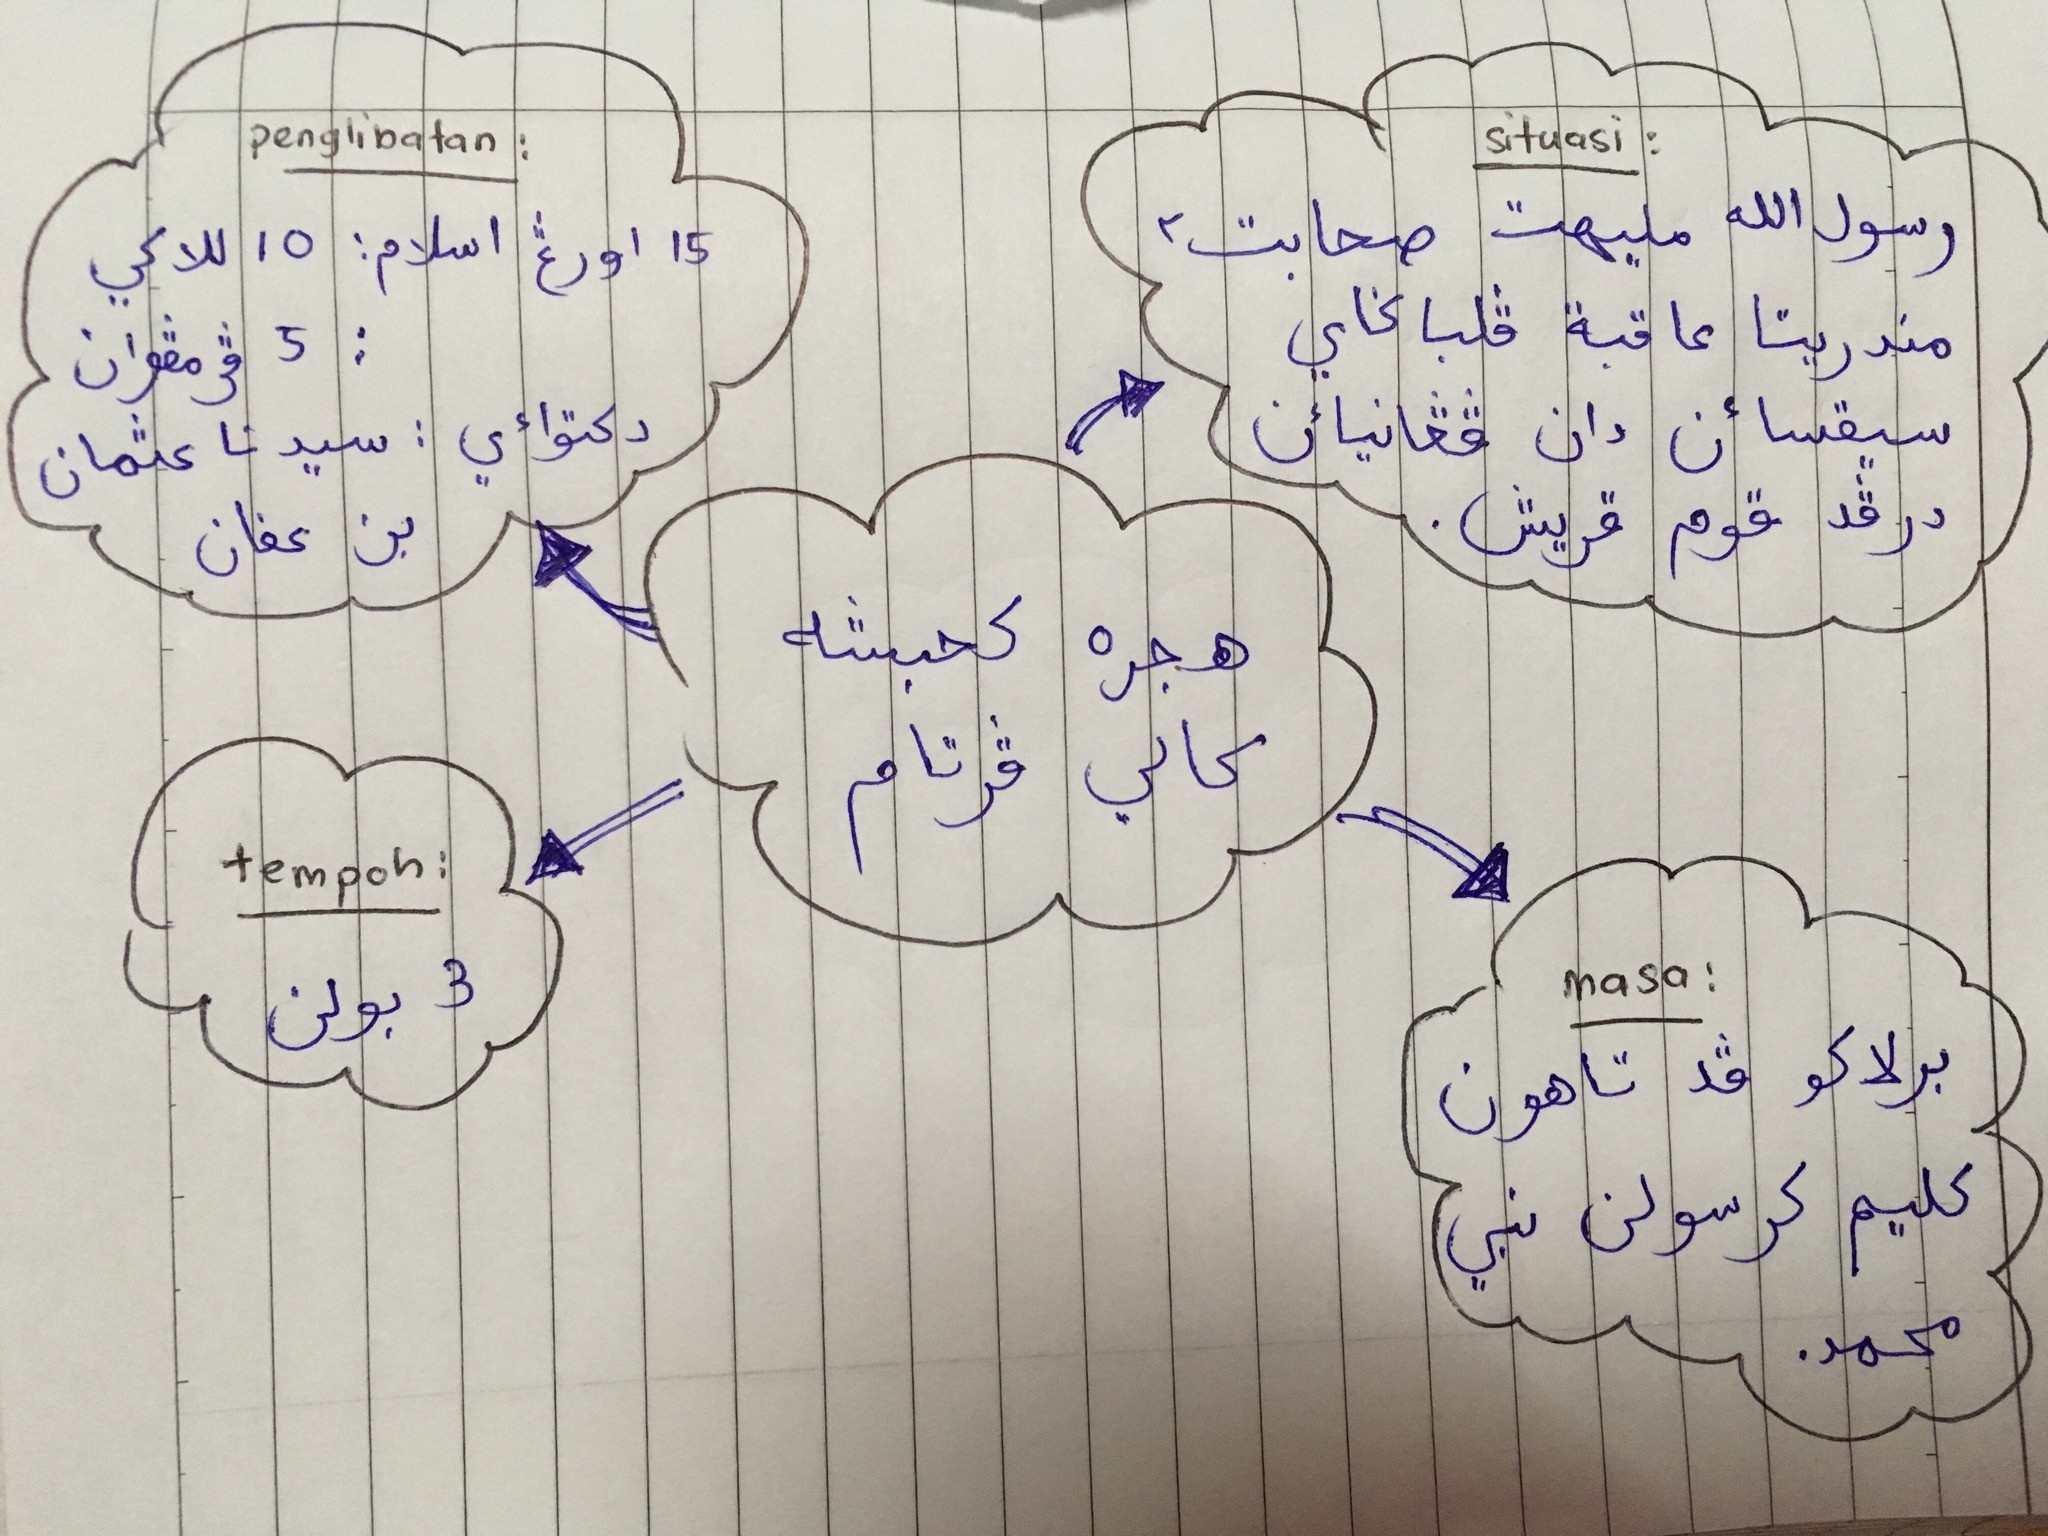 penglibatan:
15 اورڠ اسلام: 10 للاكي
: 5 ڤرمڤوان
دكتوائي : سيدنا عثمان
بن عفان
situasi:
رسول الله مليهت صحابت٢
مندريتا عاقبة ڤلباݢاي
سيقسائن دان ڤڠانيائن
درڤد قوم قريش.
هجره كحبشه
كالي ڤرتام
tempoh:
3 بولن
masa:
برلاكو ڤد تاهون
كليم كرسولن نبي
محمد.